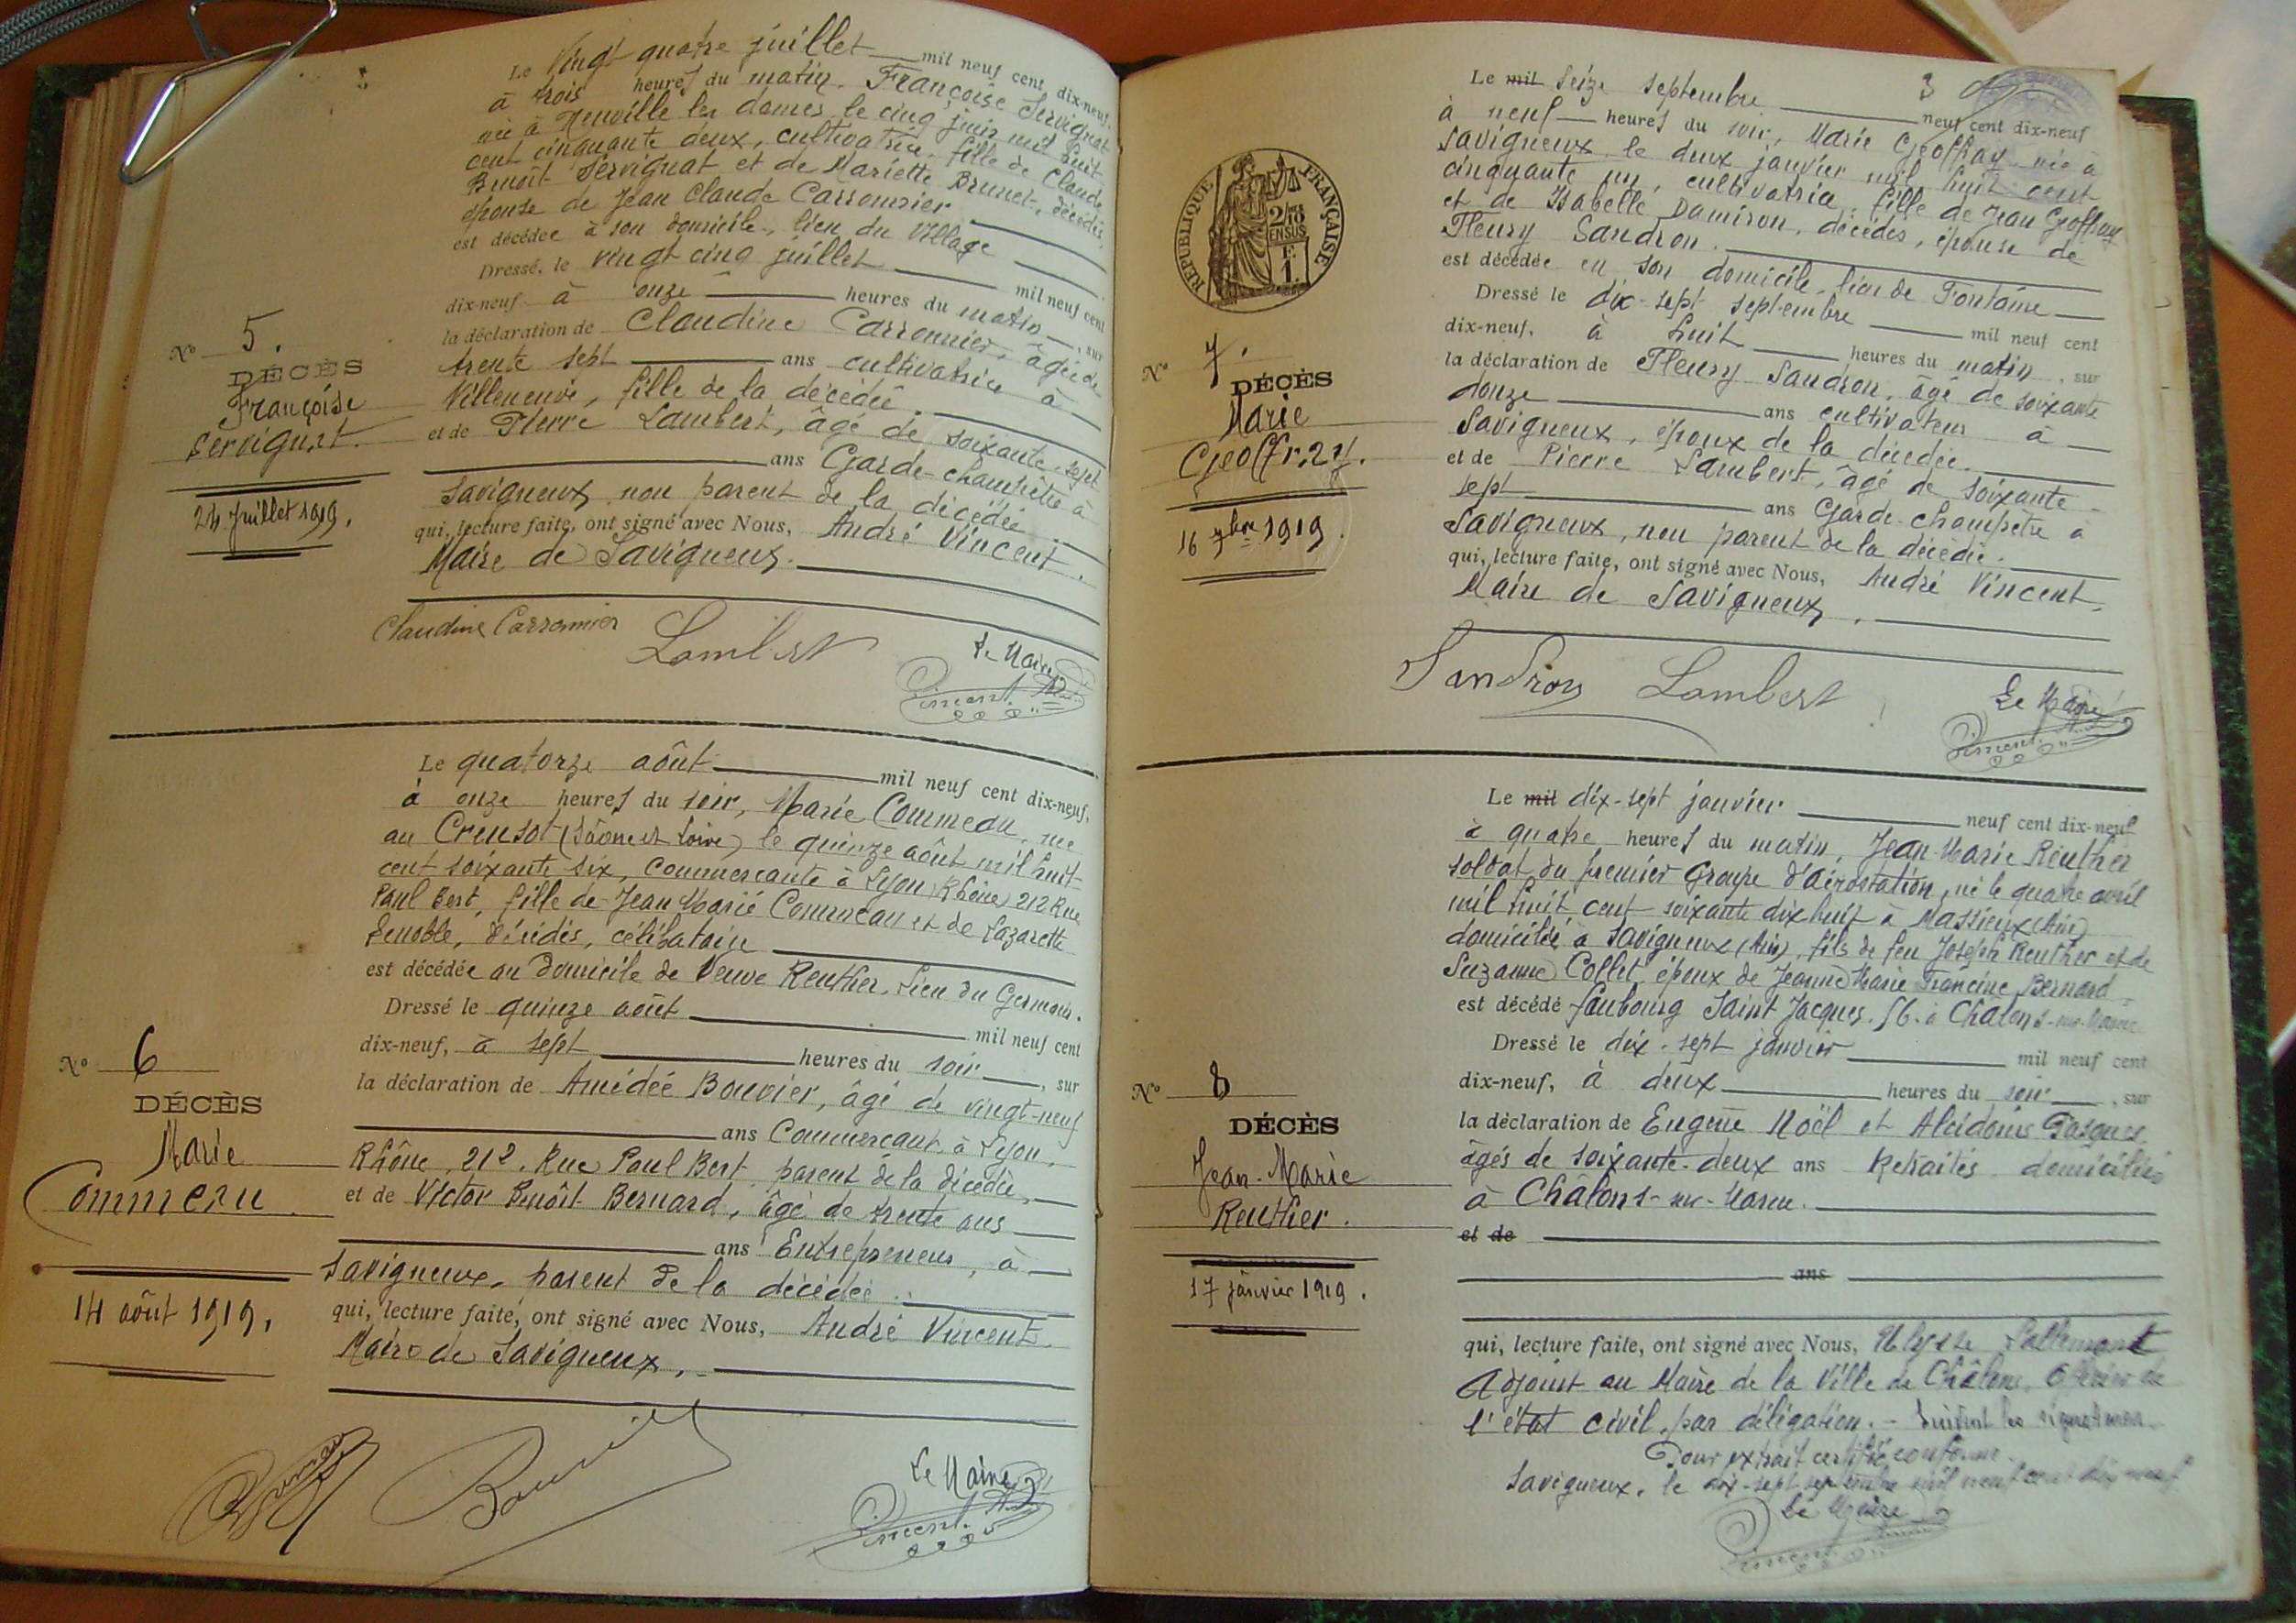 Le Vingt quatre juillet mil neuf cent dix-neuf,
à trois heures du matin, Françoise Servignat
née à Neuville les dames le cinq juin mil huit
cent cinquante deux, cultivatrice, fille de Claude
Benoît Servignat et de Mariette Brunet, décédés,
épouse de Jean Claude Carronnier
est décédée à son domicile, lieu du Village
Dressé, le vingt cinq juillet mil neuf cent
dix-neuf à onze heures du matin, sur
la déclaration de Claudine Carronnier, âgée de
trente sept ans cultivatrice à
Villeneuve, fille de la décédée.
et de Pierre Lambert, âgé de soixante-sept
ans Garde-champêtre à
Savigneux non parent de la décédée.
qui, lecture faite, ont signé avec Nous, André Vincent.
Maire de Savigneux.
N° 5.
DÉCÈS
Françoise
Servignat.
24 Juillet 1919.
Claudine Carronnier Lambert Le Maire
Vincent
Le quatorze août mil neuf cent dix-neuf,
à onze heures du soir, Marie Commeau, née
au Creusot (Saône et Loire) le quinze août mil huit
cent soixante six, commerçante à Lyon (Rhône) 212 Rue
Paul Bert, fille de Jean Marie Commeau et de Lazarette
Lenoble, décédés, célibataire
est décédée au domicile de Veuve Reuther, lieu du Germain.
Dressé le quinze août mil neuf cent
dix-neuf, à sept heures du soir, sur
la déclaration de Amédée Bouvier, âgé de vingt-neuf
ans Commerçant à Lyon,
Rhône, 212. Rue Paul Bert, parent de la décédée,
et de Victor Benoît Bernard, âgé de trente ans
ans Entrepreneur, à
Savigneux, parent de la décédée.
qui, lecture faite, ont signé avec Nous, André Vincent
Maire de Savigneux.
N° 6
DÉCÈS
Marie
Commeau.
14 août 1919.
Bouvier
Le Maire
Vincent
3
Le mil seize septembre neuf cent dix-neuf
à neuf heures du soir, Marie Geoffray née à
Savigneux le deux janvier mil huit cent
cinquante un, cultivatrice, fille de Jean Geoffray
et de Isabelle Damiron, décédés, épouse de
Fleury Sandron.
est décédée en son domicile, lieu de Fontaine
Dressé le dix-sept septembre mil neuf cent
dix-neuf, à huit heures du matin, sur
la déclaration de Fleury Sandron, âgé de soixante
douze ans cultivateur à
Savigneux, époux de la décédée.
et de Pierre Lambert, âgé de soixante
sept ans Garde-champêtre à
Savigneux, non parent de la décédée.
qui, lecture faite, ont signé avec Nous, André Vincent,
Maire de Savigneux.
RÉPUBLIQUE FRANÇAISE
2/10
EN SUS
F
1.
N° 7.
DÉCÈS
Marie
Geoffray.
16 7bre 1919.
Sandron Lambert Le Maire
Vincent
Le mil dix-sept janvier neuf cent dix-neuf
à quatre heures du matin, Jean-Marie Reuther
soldat du premier Groupe d'aérostation, né le quatre avril
mil huit cent soixante dix huit à Massieux (Ain)
domicilié à Savigneux (Ain), fils de feu Joseph Reuther et de
Suzanne Collet, époux de Jeanne Marie Francine Bernard
est décédé faubourg Saint Jacques. 56. à Châlons-sur-Marne
Dressé le dix-sept janvier mil neuf cent
dix-neuf, à deux heures du soir, sur
la déclaration de Eugène Noël et
âgés de soixante-deux ans Retraités domiciliés
à Châlons-sur-Marne.
et de
ans
qui, lecture faite, ont signé avec Nous, Ulysse Lallemant
Adjoint au Maire de la Ville de Châlons, Officier de
l'état civil, par délégation. - Suivent les signatures
Pour extrait certifié conforme
Savigneux, le dix-sept septembre mil neuf cent dix neuf
Le Maire
Vincent
N° 8
DÉCÈS
Jean-Marie
Reuther.
17 janvier 1919.